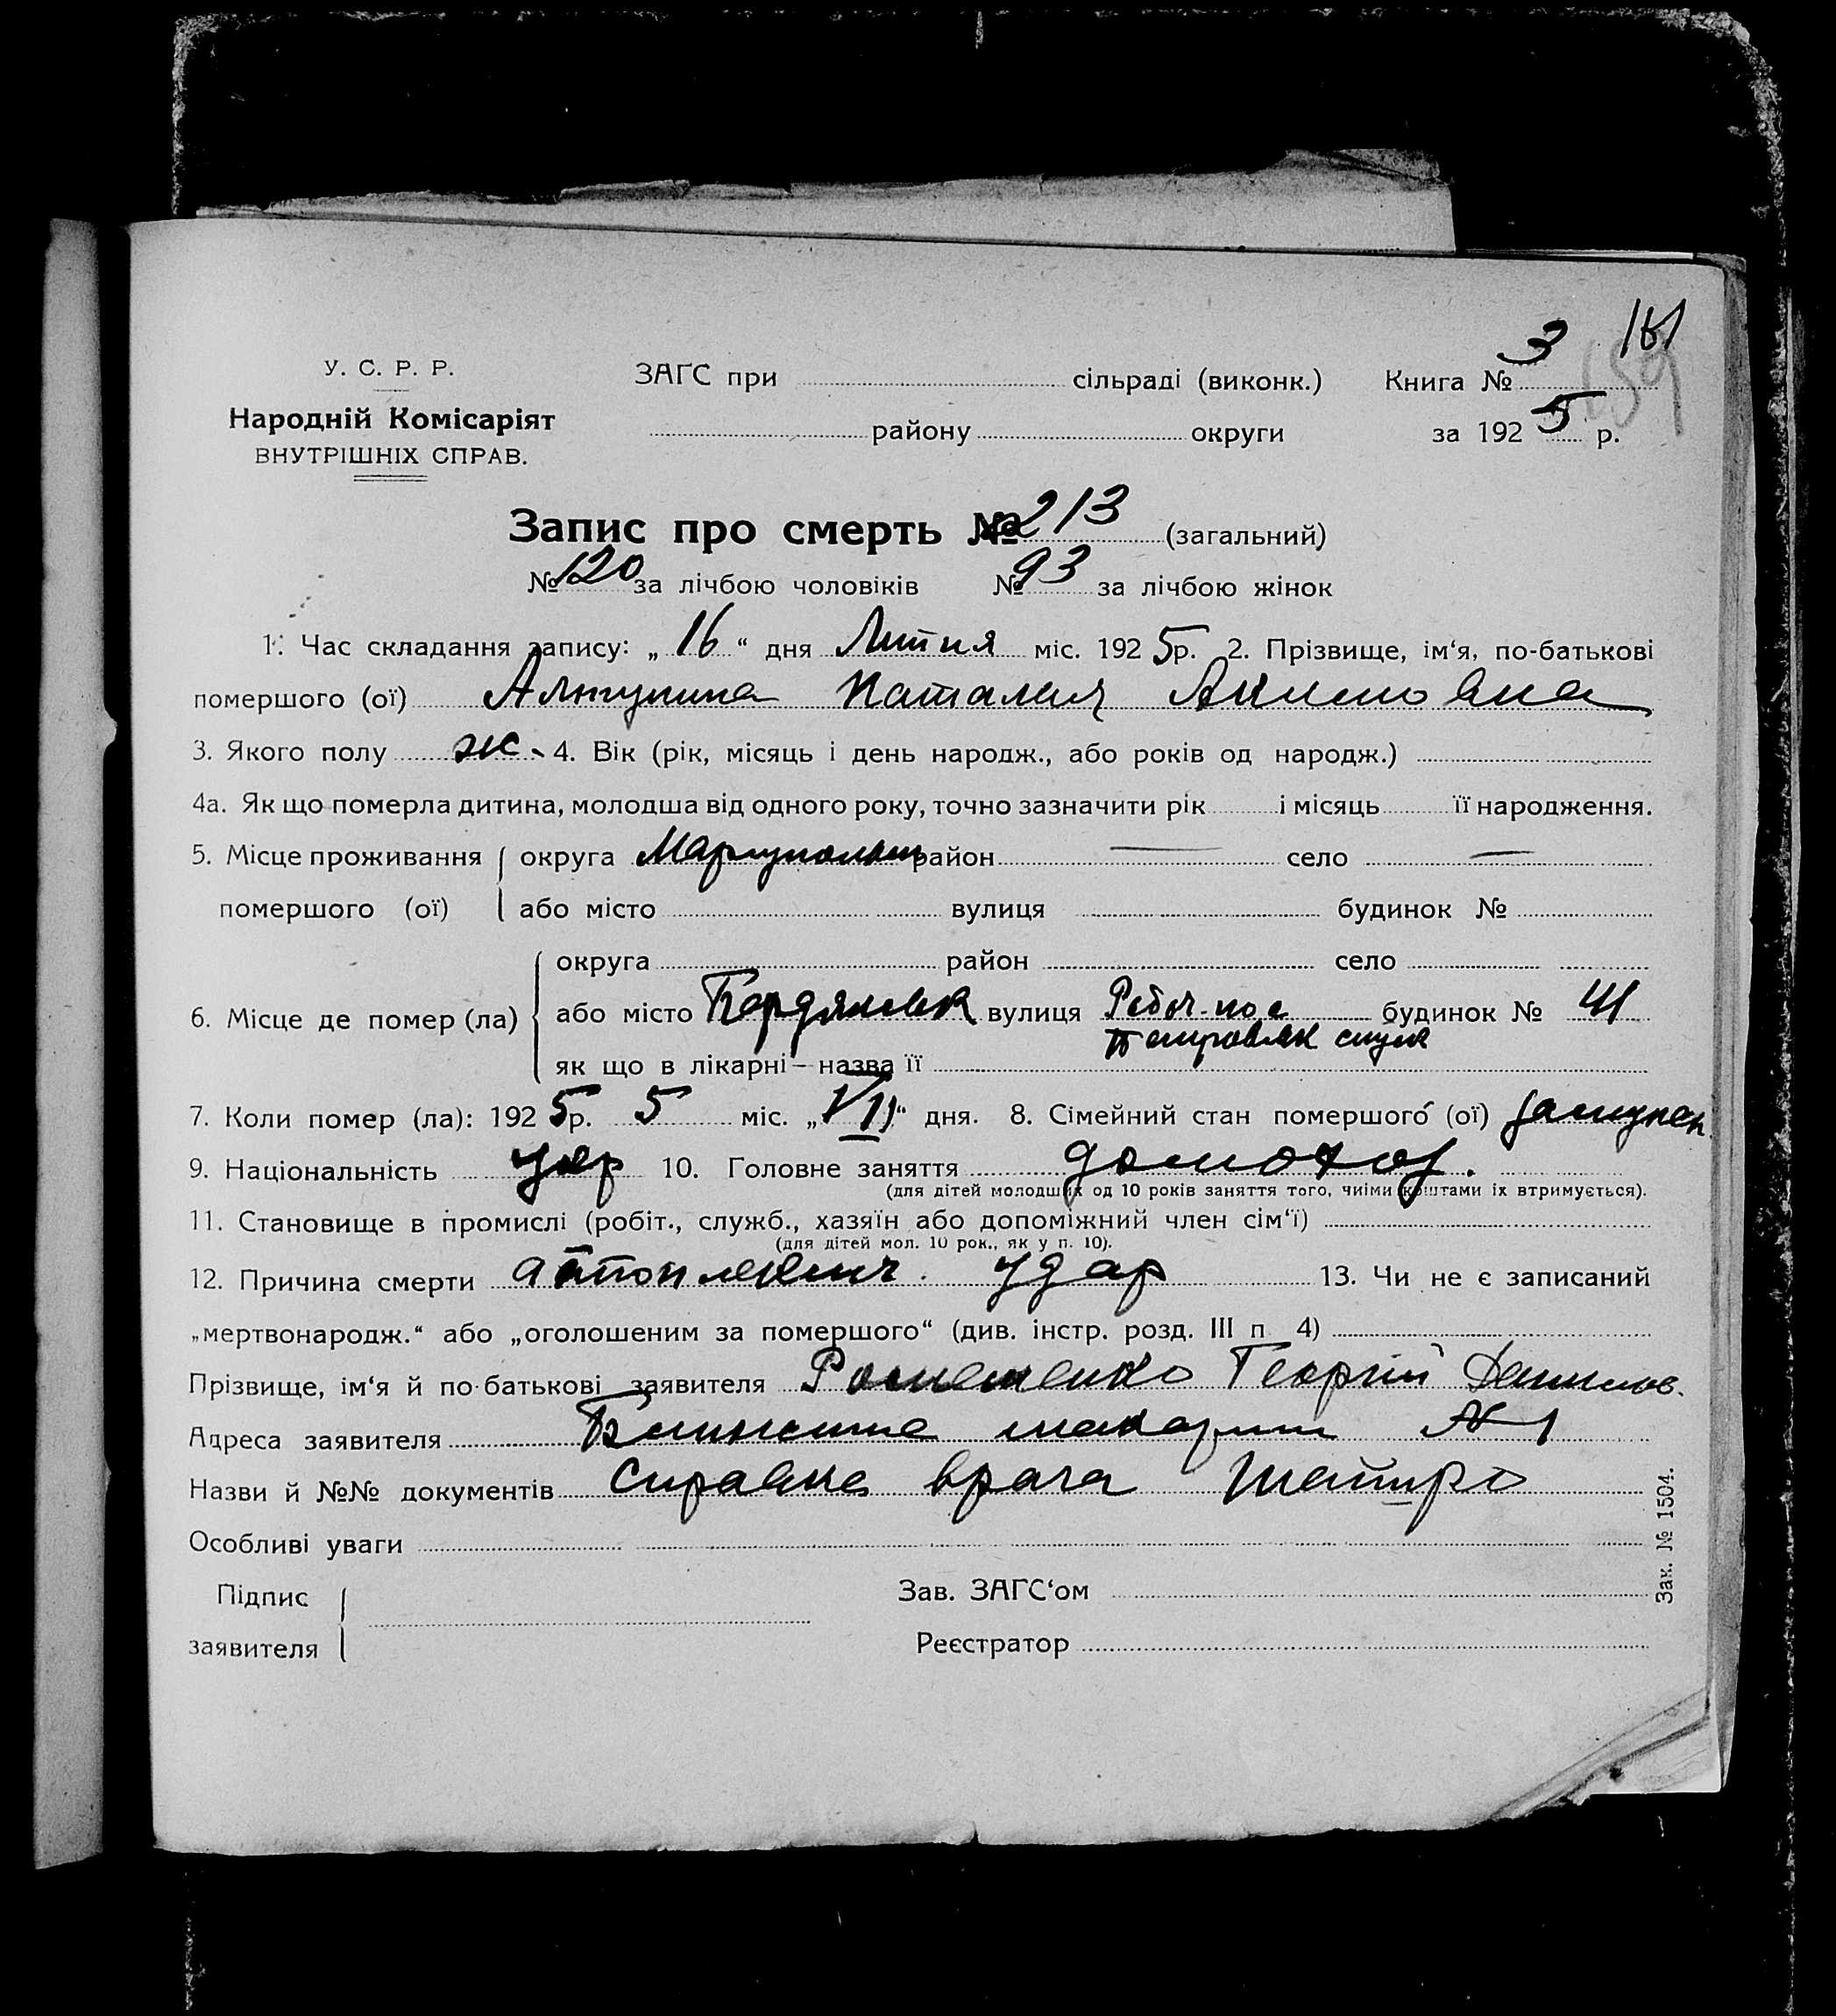 161
159
У. С. Р. Р.
ЗАГС при сільраді (виконк.) Книга № 3
Народній Комісаріят
ВНУТРІШНІХ СПРАВ.
району округи за 1925 р.
Запис про смерть № 213 (загальний)
№ 120 за лічбою чоловіків № 93 за лічбою жінок
1. Час складання запису: „16“ дня Липня міс. 1925р. 2. Прізвище, ім‘я, по-батькові
помершого (ої) Наталия Акимовна
3. Якого полу ж. 4. Вік (рік, місяць і день народж., або років од народж.)
4а. Як що померла дитина, молодша від одного року, точно зазначити рік і місяць її народження.
5. Місце проживання округа район — село —
помершого (ої) або місто вулиця будинок №
округа район село
6. Місце де помер (ла) або місто Бердянськ вулиця Рабоч. пос будинок № 41
як що в лікарні – назва її
7. Коли помер (ла): 1925р. 5 міс. „VII“ дня. 8. Сімейний стан помершого (ої)
9. Національність укр 10. Головне заняття домохоз.
(для дітей молодших од 10 років заняття того, чиїми коштами їх втримується).
11. Становище в промислі (робіт., служб., хазяїн або допоміжний член сім‘ї)
(для дітей мол. 10 рок., як у п. 10).
12. Причина смерти удар 13. Чи не є записаний
„мертвонародж.“ або „оголошеним за помершого“ (див. інстр. розд. III п. 4)
Прізвище, ім‘я й по-батькові заявителя Георгій Данилов.
Адреса заявителя № 1
Назви й №№ документів Справка врача Шапиро
Особливі уваги
Підпис Зав. ЗАГС‘ом
заявителя Реєстратор
Зак. № 1504.